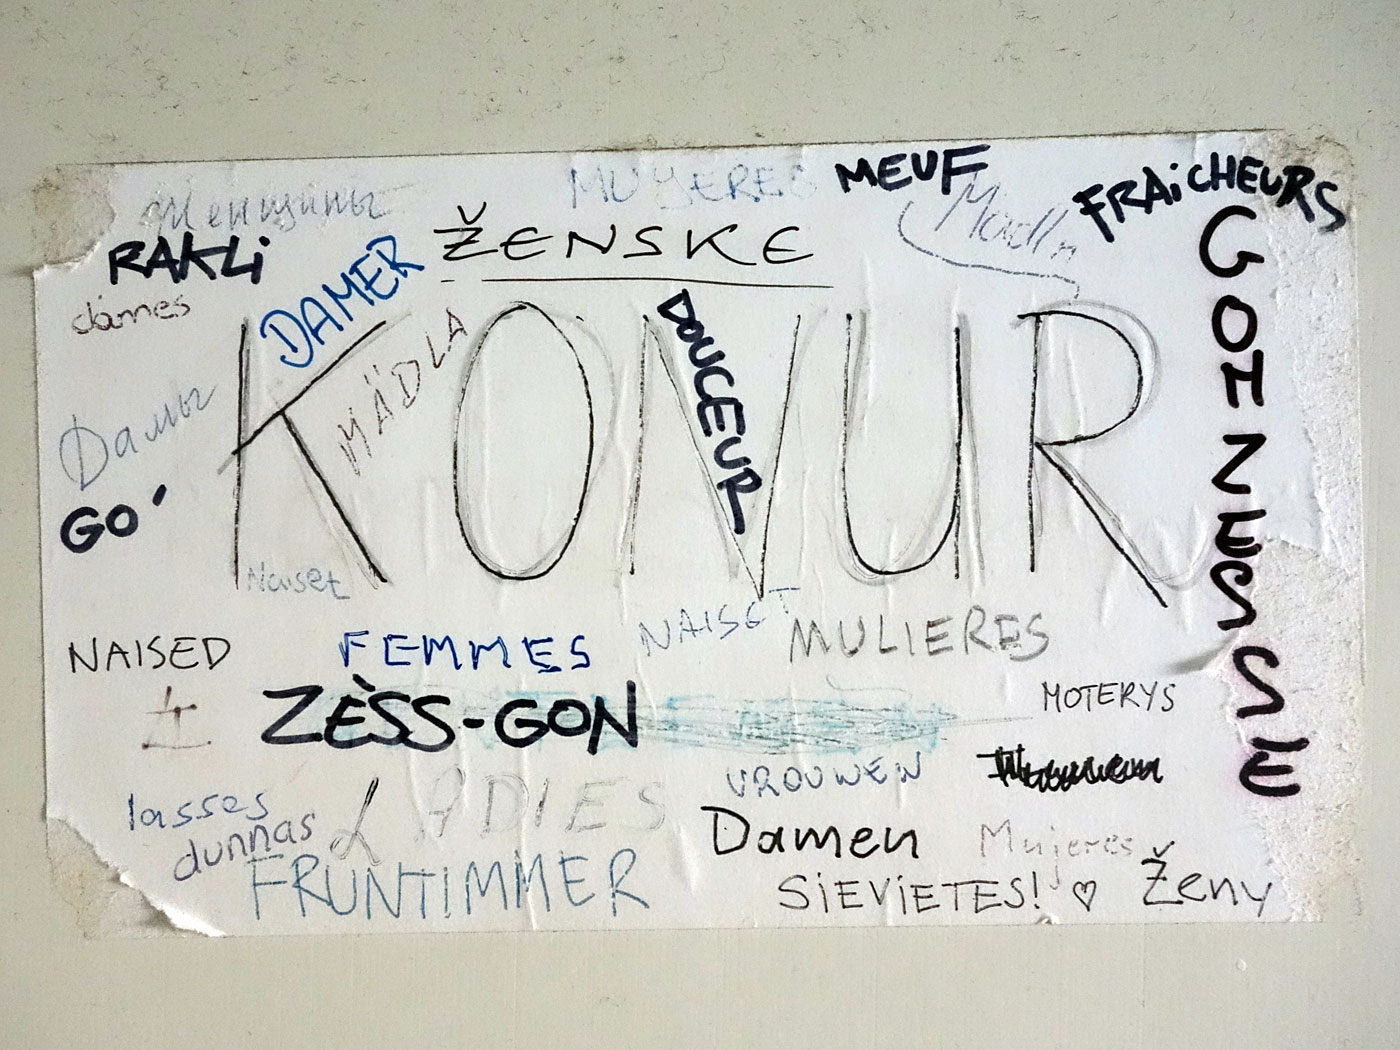 Женщины
MUJERES
MEUF
FRAiCHEURS
RAKLi
DAMER
ŽENSKE
Madln
GONZESSE
dames
MÄDLA
KONUR
DOUCEUR
Дамы
GO'
Naiset
NAISET
NAISED
FEMMES
MULIERES
ZÈSS-GON
MOTERYS
VROUWEN
lasses
LADIES
dunnas
Damen
Mujeres
FRUNTIMMER
SiEViETES! ♡
Ženy